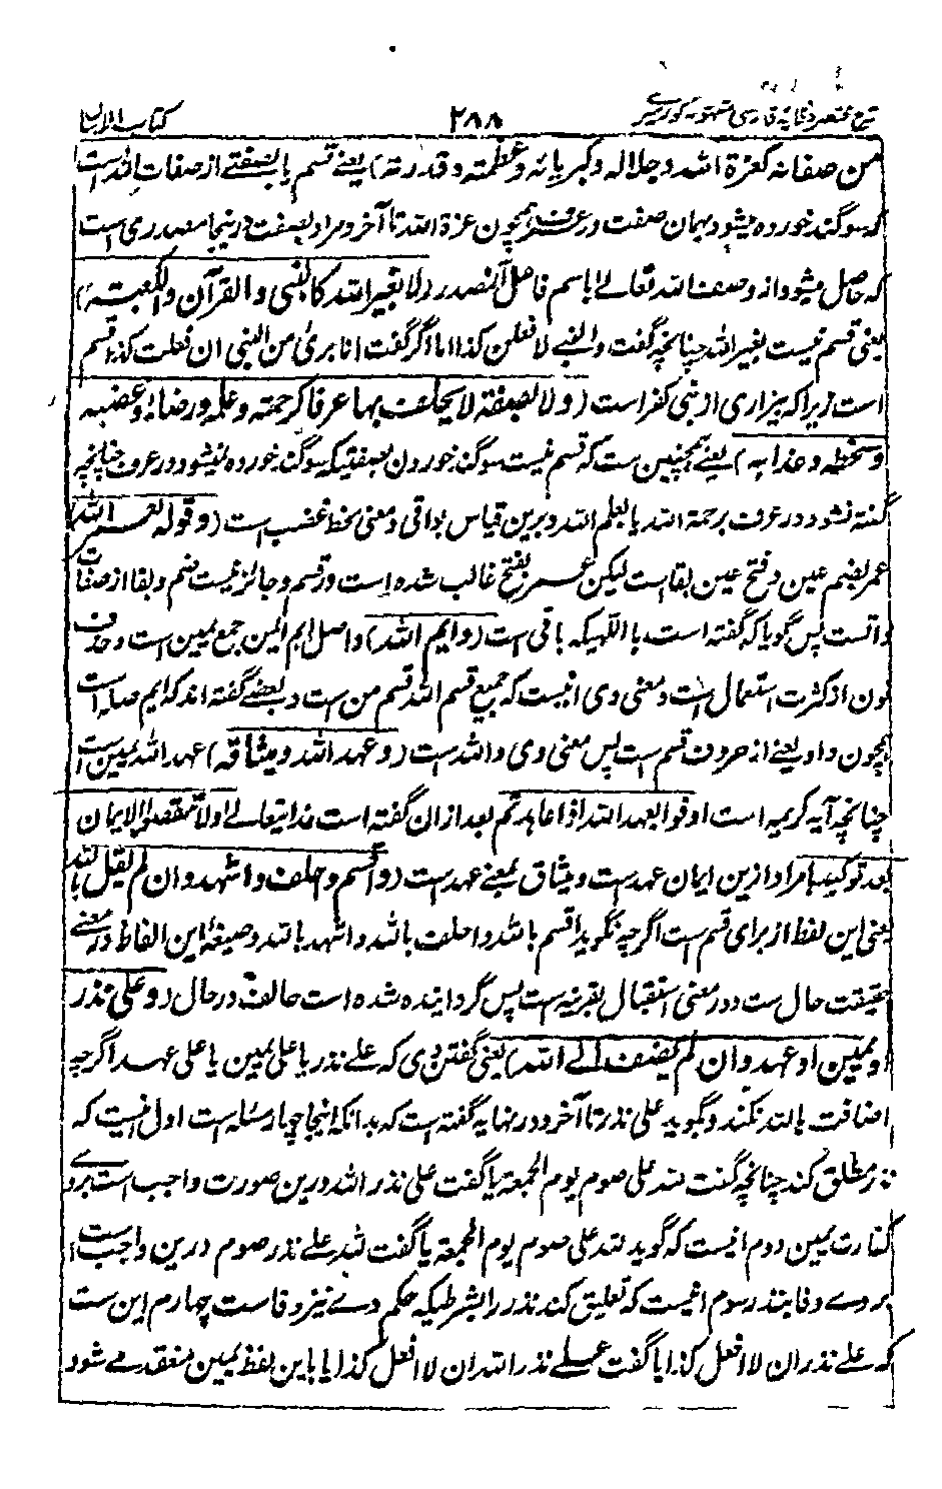 شرح مختصر وقایه فارسی مشهور به کور میری ۲۸۸ کتاب الایمان
من صفاته کعزة الله وجلاله وکبریائه وعظمته وقدرته) یعنے قسم یا بصفتے از صفات الله است
که سوگند خورده میشود بهمان صفت در عرف همچون عزة الله تا آخر و مراد بصفت درینجا مصدری است
که حاصل میشود از وصف الله تعالے باسم فاصل آن مصدر (لا بغیر الله کالنبی والقرآن والکعبة)
یعنی قسم نیست بغیر الله چنانچه گفت والنبے لا فعلن کذا اما اگر گفت انا بریٔ من النبی ان فعلت کذا قسم
است زیرا که بیزاری از نبی کفر است (ولا بصفة لا یحلف بها عرفا کرحمته وعلمه ورضائه وغضبه
وسخطه وعذابه) یعنے همچنین ست که قسم نیست سوگند خوردن بصفتیکه سوگند خورده نمیشود در عرف چنانچه
گفته نشود در عرف برحمة الله یا بعلم الله و برین قیاس بواقی و معنی سخط غضب است (وقوله لعمر الله
عمر بضم عین و فتح عین بقا ست لیکن عمر بفتح غالب شده است در قسم و جائز نیست ضم و بقا از صفات
ذاتست پس گویا که گفته است با اللهیکه باقی است (وایم الله) و اصل ایم ایمن جمع یمین است و حذف
نون از کثرت استعمال است و معنی وی انیست که جمیع قسم الله قسم من است و بعضے گفته اند که ایم صله است
همچون واو یعنے از حروف قسم ست پس معنی وی والله ست (وعهد الله ومیثاقه) عهد الله یمین ست
چنانچه آیه کریمه است اوفوا بعهد الله اذا عاهدتم بعد ازان گفته است خدایتعالے ولا تنقضوا الایمان
بعد توکیدها مراد ازین ایمان عهد ست و میثاق بمعنے عهد ست (واقسم واحلف واشهد وان لم یقل بالله
یعنی این لفظ از برای قسم ست اگرچه نگوید اقسم بالله و احلف بالله و اشهد بالله و صیغهٔ این الفاظ در معنے
حقیقت حال ست و در معنی استقبال بقرینه ست پس گردانیده شده است حالف در حال (وعلی نذر
او یمین او عهد وان لم یضف الے الله) یعنی گفتن وی که علے نذر یا علی یمین یا علی عهد اگرچه
اضافت بالله نکند و بگوید علی نذر تا آخر و در نهایه گفته است که بدانکه اینجا چهار مسئله است اول انیست که
نذر مطلق کند چنانچه گفت لله علی صوم یوم الجمعة یا گفت علی نذر الله درین صورت واجب است بروے
کفارت یمین دوم انیست که گوید لله علی صوم یوم الجمعة یا گفت لله علے نذر صوم درین واجب است
بروے وفا بنذر سوم انیست که تعلیق کند نذر را بشرطیکه حکم وے نیز وفاست چهارم این ست
که علے نذر ان لا افعل کذا یا گفت علے نذر الله ان لا افعل کذا یا باین لفظ یمین منعقد مے شود